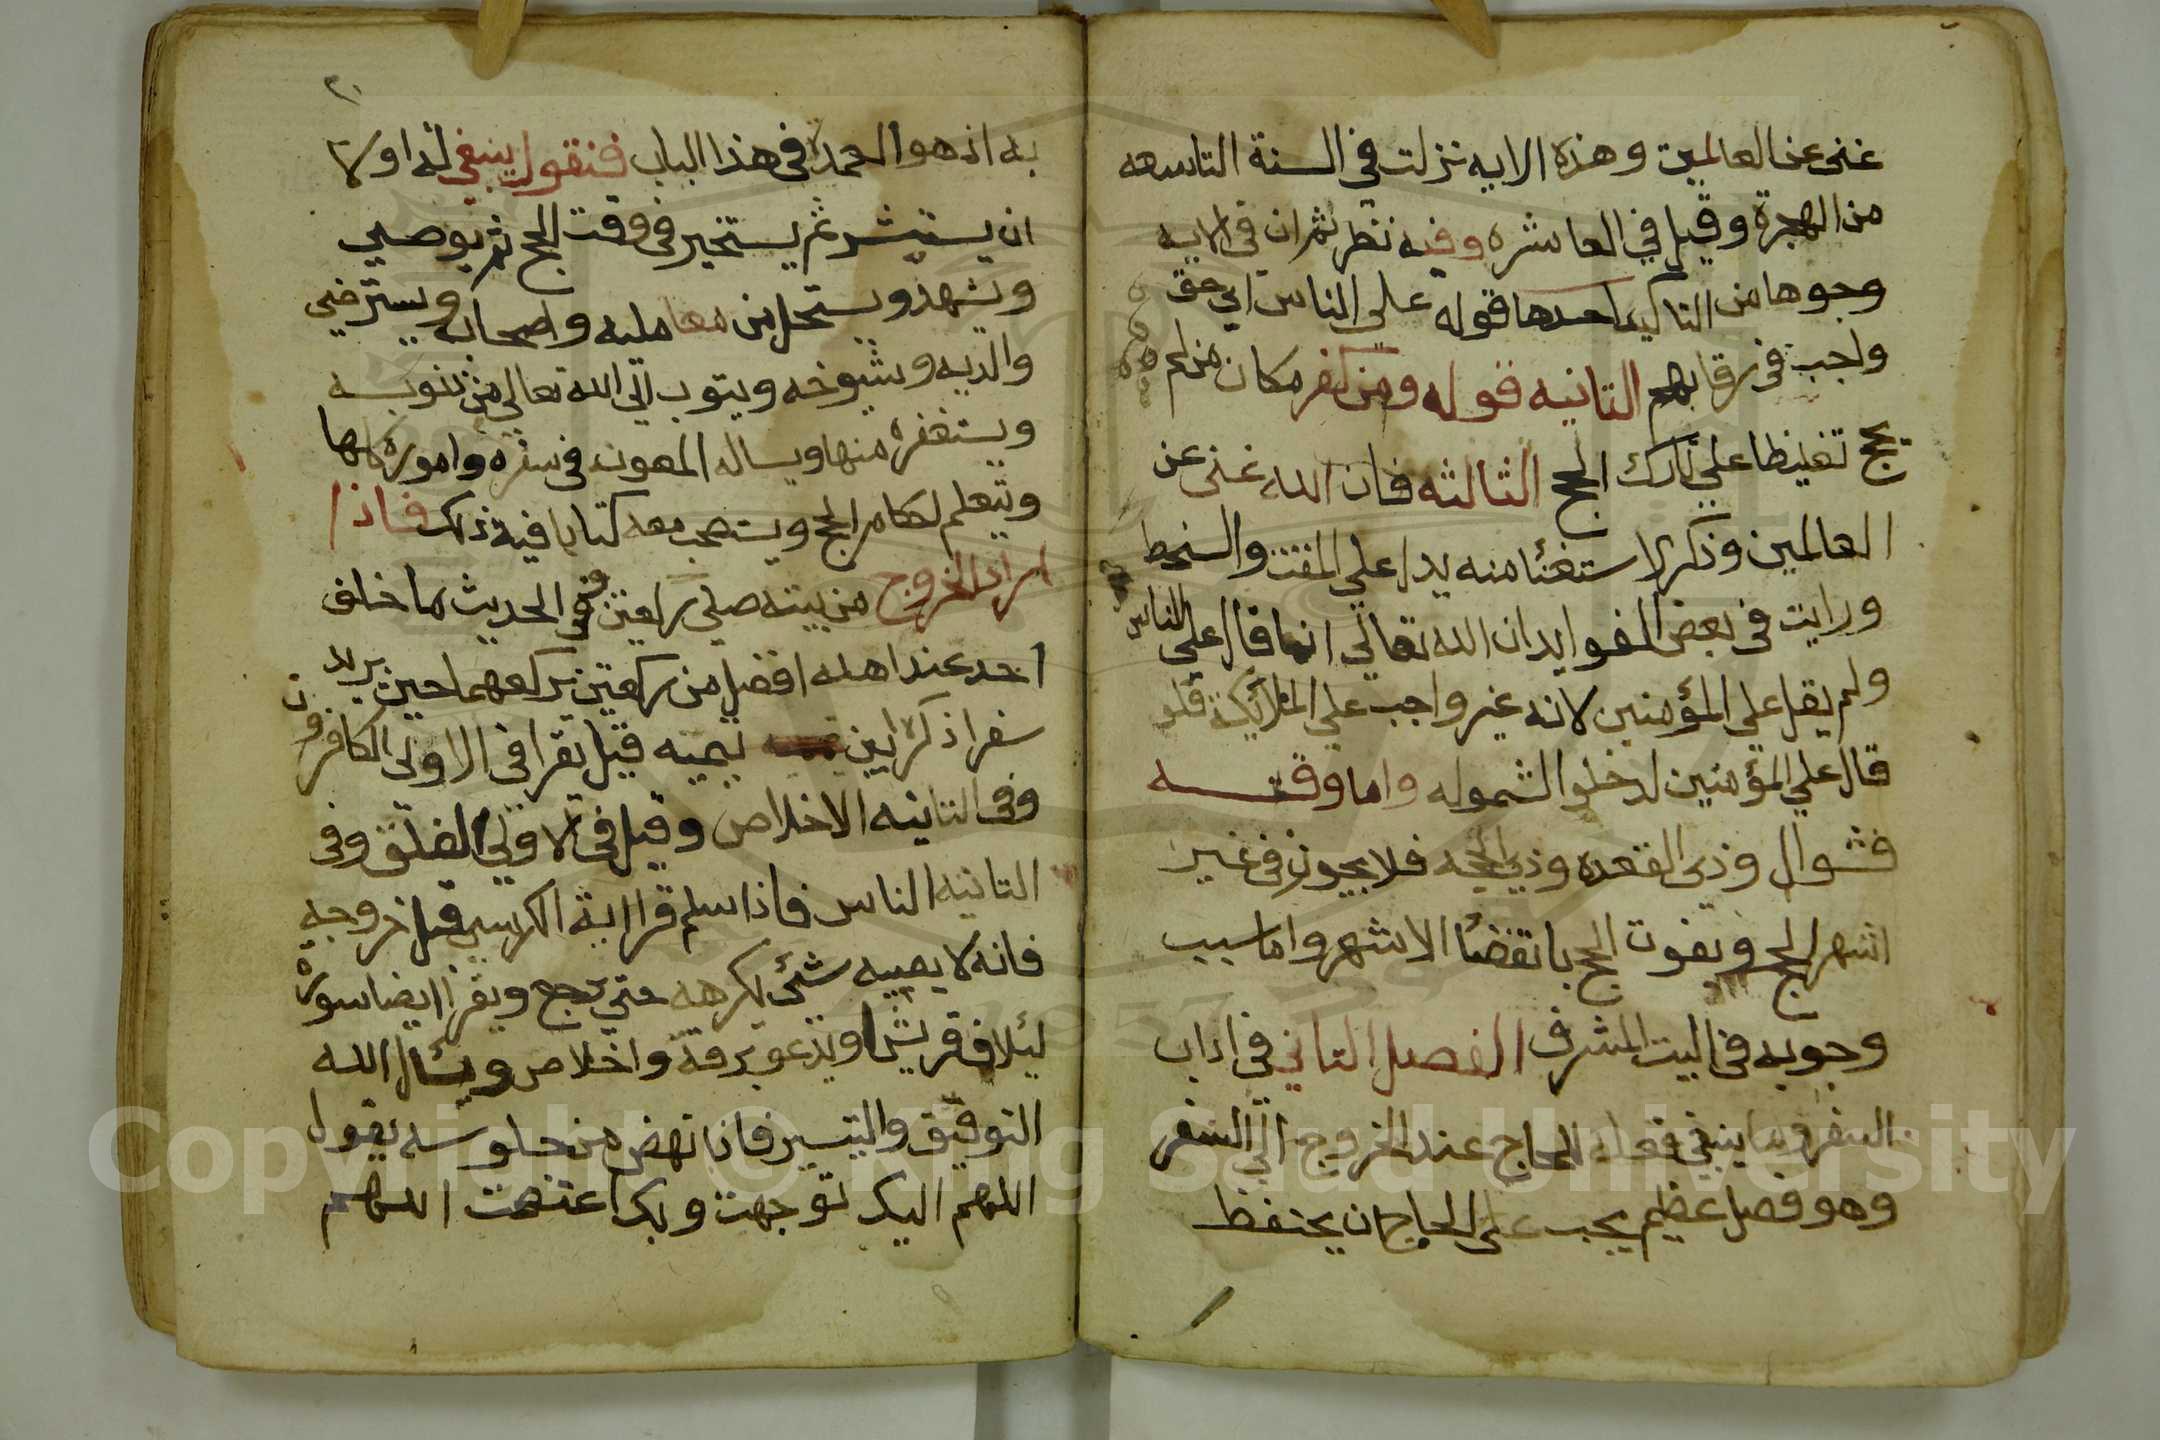 غنى عن العالمين وهذه الايه نزلت في السنة التاسعه
من الهجرة وقيل في العاشره وفيه نظر ثم ان في الايه
وجوها من التاكيد احدها قوله علي الناس اي حق
واجب في رقابهم الثانيه قوله ومن كفر مكان من لم
يحج تغليظا علي تارك الحج الثالثه فان الله غنى عن
العالمين وذكر الاستغنا منه يدل علي المقت والسخط
ورايت في بعض الفوايد ان الله تعالي انما قال علي الناس
ولم يقل علي المؤمنين لانه غير واجب علي الملائكة فلو
قال علي المؤمنين لدخلوا لشموله واما وقته
فشوال وذى القعده وذي الحجه فلا يجوز في غير
اشهر الحج ويفوت الحج بانقضا الاشهر واما سبب
وجوبه في البيت المشرف الفصل الثاني في اداب
السفر وما ينبغي فعله للحاج عند الخروج الي السفر
وهو فصل عظيم يجب على الحاج ان يحتفظ
به اذ هو العمدة في هذا الباب فنقول ينبغي له اولا
ان يستشير ثم يستخير في وقت الحج ثم يوصي
ويشهد ويستحل من معامليه واصحابه ويسترضي
والديه وشيوخه ويتوب الي الله تعالي من ذنوبه
ويستغفره منها ويساله المعونه في سفره واموره كلها
ويتعلم احكام الحج ويستصحب معه كتابا فيه ذلك فاذا
اراد الخروج من بيته صلي ركعتين وفي الحديث ما خلف
احد عند اهله افضل من ركعتين يركعهما حين يريد
سفرا ذكره ابن تيميه قيل يقرا في الاولى الكافرون
وفي الثانيه الاخلاص وقيل في الاولي الفلق وفي
الثانيه الناس فاذا سلم قرا اية الكرسي قبل خروجه
فانه لا يصيبه شئ يكرهه حتي يرجع ويقرا ايضا سورة
لئلاف قريش ويدعو برقة واخلاص ويسال الله
التوفيق والتيسير فاذا نهض من جلوسه يقول
اللهم اليك توجهت وبك اعتصمت اللهم
Copyright © King Saud University
1957